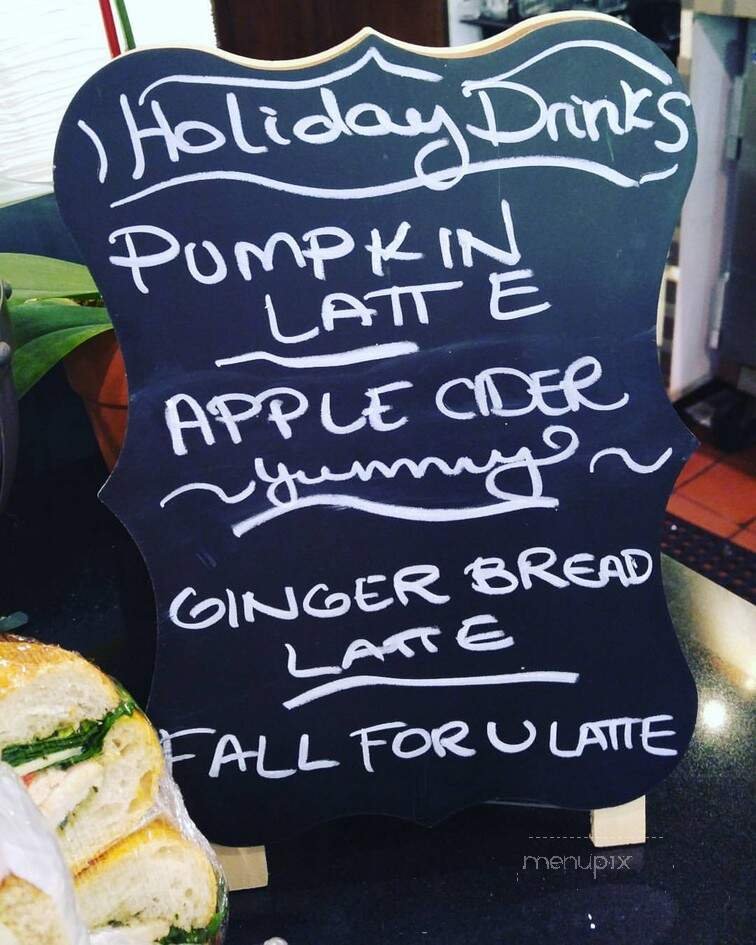 Holiday Drinks
PUMPKIN
LATTE
APPLE CIDER
~yummy~
GINGER BREAD
LATTE
FALL FOR U LATTE
menupix